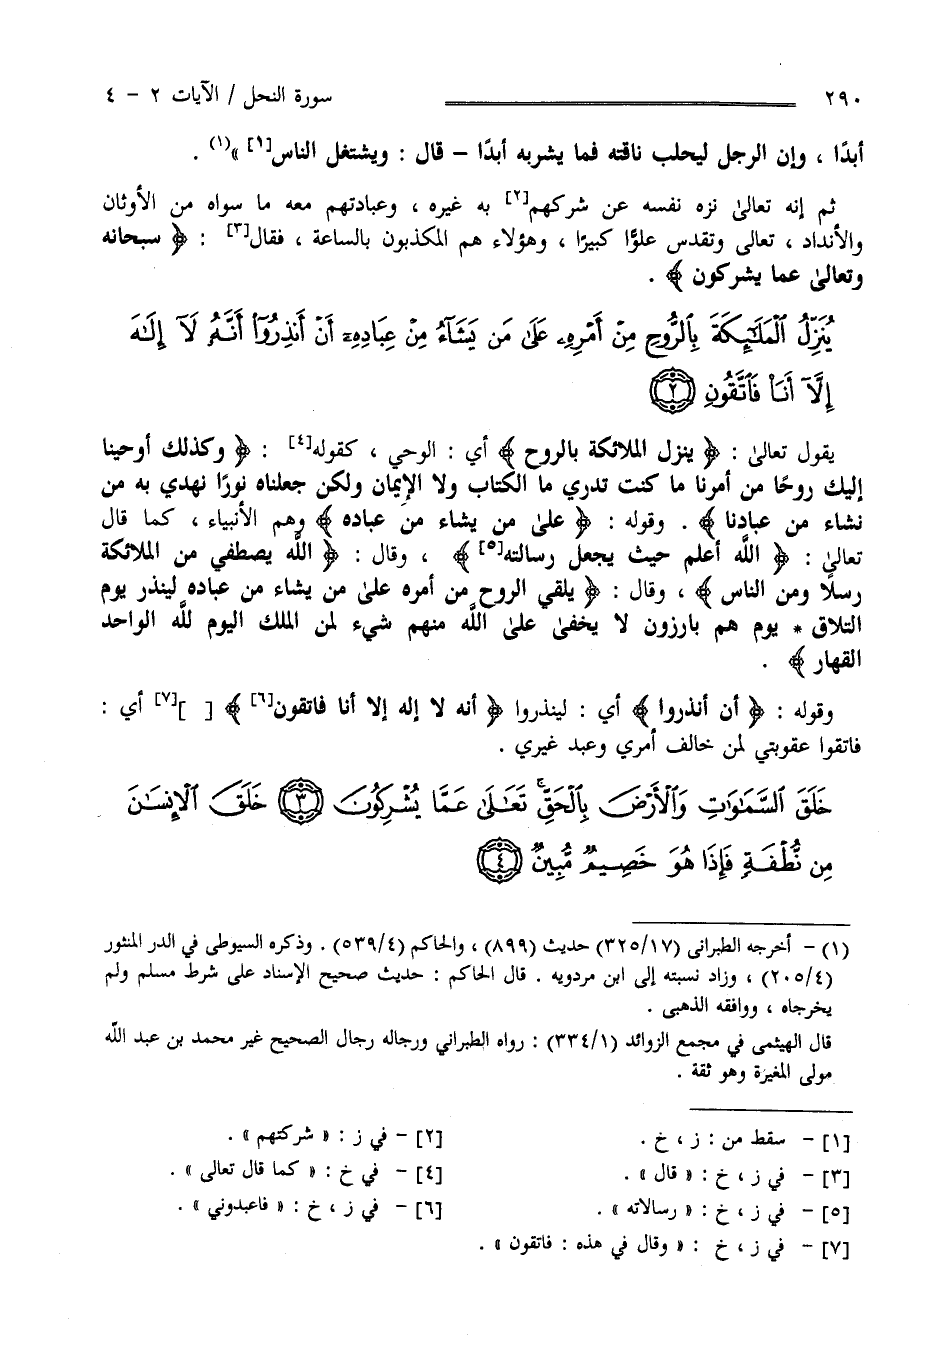 ٢٩٠ سورة النحل / الآيات ٢ - ٤
أبدًا ، وإن الرجل ليحلب ناقته فما يشربه أبدًا – قال : ويشتغل الناس[١] »(١) .
ثم إنه تعالىٰ نزه نفسه عن شركهم[٢] به غيره ، وعبادتهم معه ما سواه من الأوثان
والأنداد ، تعالى وتقدس علوًّا كبيرًا ، وهؤلاء هم المكذبون بالساعة ، فقال[٣] : ﴿ سبحانه
وتعالىٰ عما يشركون ﴾ .
يُنَزِّلُ ٱلْمَلَٰٓئِكَةَ بِٱلرُّوحِ مِنْ أَمْرِهِۦ عَلَىٰ مَن يَشَآءُ مِنْ عِبَادِهِۦٓ أَنْ أَنذِرُوٓا۟ أَنَّهُۥ لَآ إِلَٰهَ
إِلَّآ أَنَا۠ فَٱتَّقُونِ ٢
يقول تعالىٰ : ﴿ ينزل الملائكة بالروح ﴾ أي : الوحي ، كقوله[٤] : ﴿ وكذلك أوحينا
إليك روحًا من أمرنا ما كنت تدري ما الكتاب ولا الإيمان ولكن جعلناه نورًا نهدي به من
نشاء من عبادنا ﴾ . وقوله : ﴿ علىٰ من يشاء من عباده ﴾ وهم الأنبياء ، كما قال
تعالىٰ : ﴿ اللَّه أعلم حيث يجعل رسالته[٥] ﴾ ، وقال : ﴿ اللَّه يصطفي من الملائكة
رسلًا ومن الناس ﴾ ، وقال : ﴿ يلقي الروح من أمره علىٰ من يشاء من عباده لينذر يوم
التلاق * يوم هم بارزون لا يخفىٰ علىٰ اللَّه منهم شيء لمن الملك اليوم للَّه الواحد
القهار ﴾ .
وقوله : ﴿ أن أنذروا ﴾ أي : لينذروا ﴿ أنه لا إله إلا أنا فاتقون[٦] ﴾ [ ][٧] أي :
فاتقوا عقوبتي لمن خالف أمري وعبد غيري .
خَلَقَ ٱلسَّمَٰوَٰتِ وَٱلْأَرْضَ بِٱلْحَقِّ ۚ تَعَٰلَىٰ عَمَّا يُشْرِكُونَ ٣ خَلَقَ ٱلْإِنسَٰنَ
مِن نُّطْفَةٍ فَإِذَا هُوَ خَصِيمٌ مُّبِينٌ ٤
(١) – أخرجه الطبرانى (٣٢٥/١٧) حديث (٨٩٩) ، والحاكم (٥٣٩/٤) . وذكره السيوطى في الدر المنثور
(٢٠٥/٤) ، وزاد نسبته إلى ابن مردويه . قال الحاكم : حديث صحيح الإسناد على شرط مسلم ولم
يخرجاه ، ووافقه الذهبى .
قال الهيثمى في مجمع الزوائد (٣٣٤/١) : رواه الطبراني ورجاله رجال الصحيح غير محمد بن عبد اللَّه
مولى المغيرة وهو ثقة .
[١] – سقط من : ز ، خ . [٢] – في ز : « شركتهم » .
[٣] – في ز ، خ : « قال » . [٤] – في خ : « كما قال تعالى » .
[٥] – في ز ، خ : « رسالاته » . [٦] – في ز ، خ : « فاعبدوني » .
[٧] – في ز ، خ : « وقال في هذه : فاتقون » .